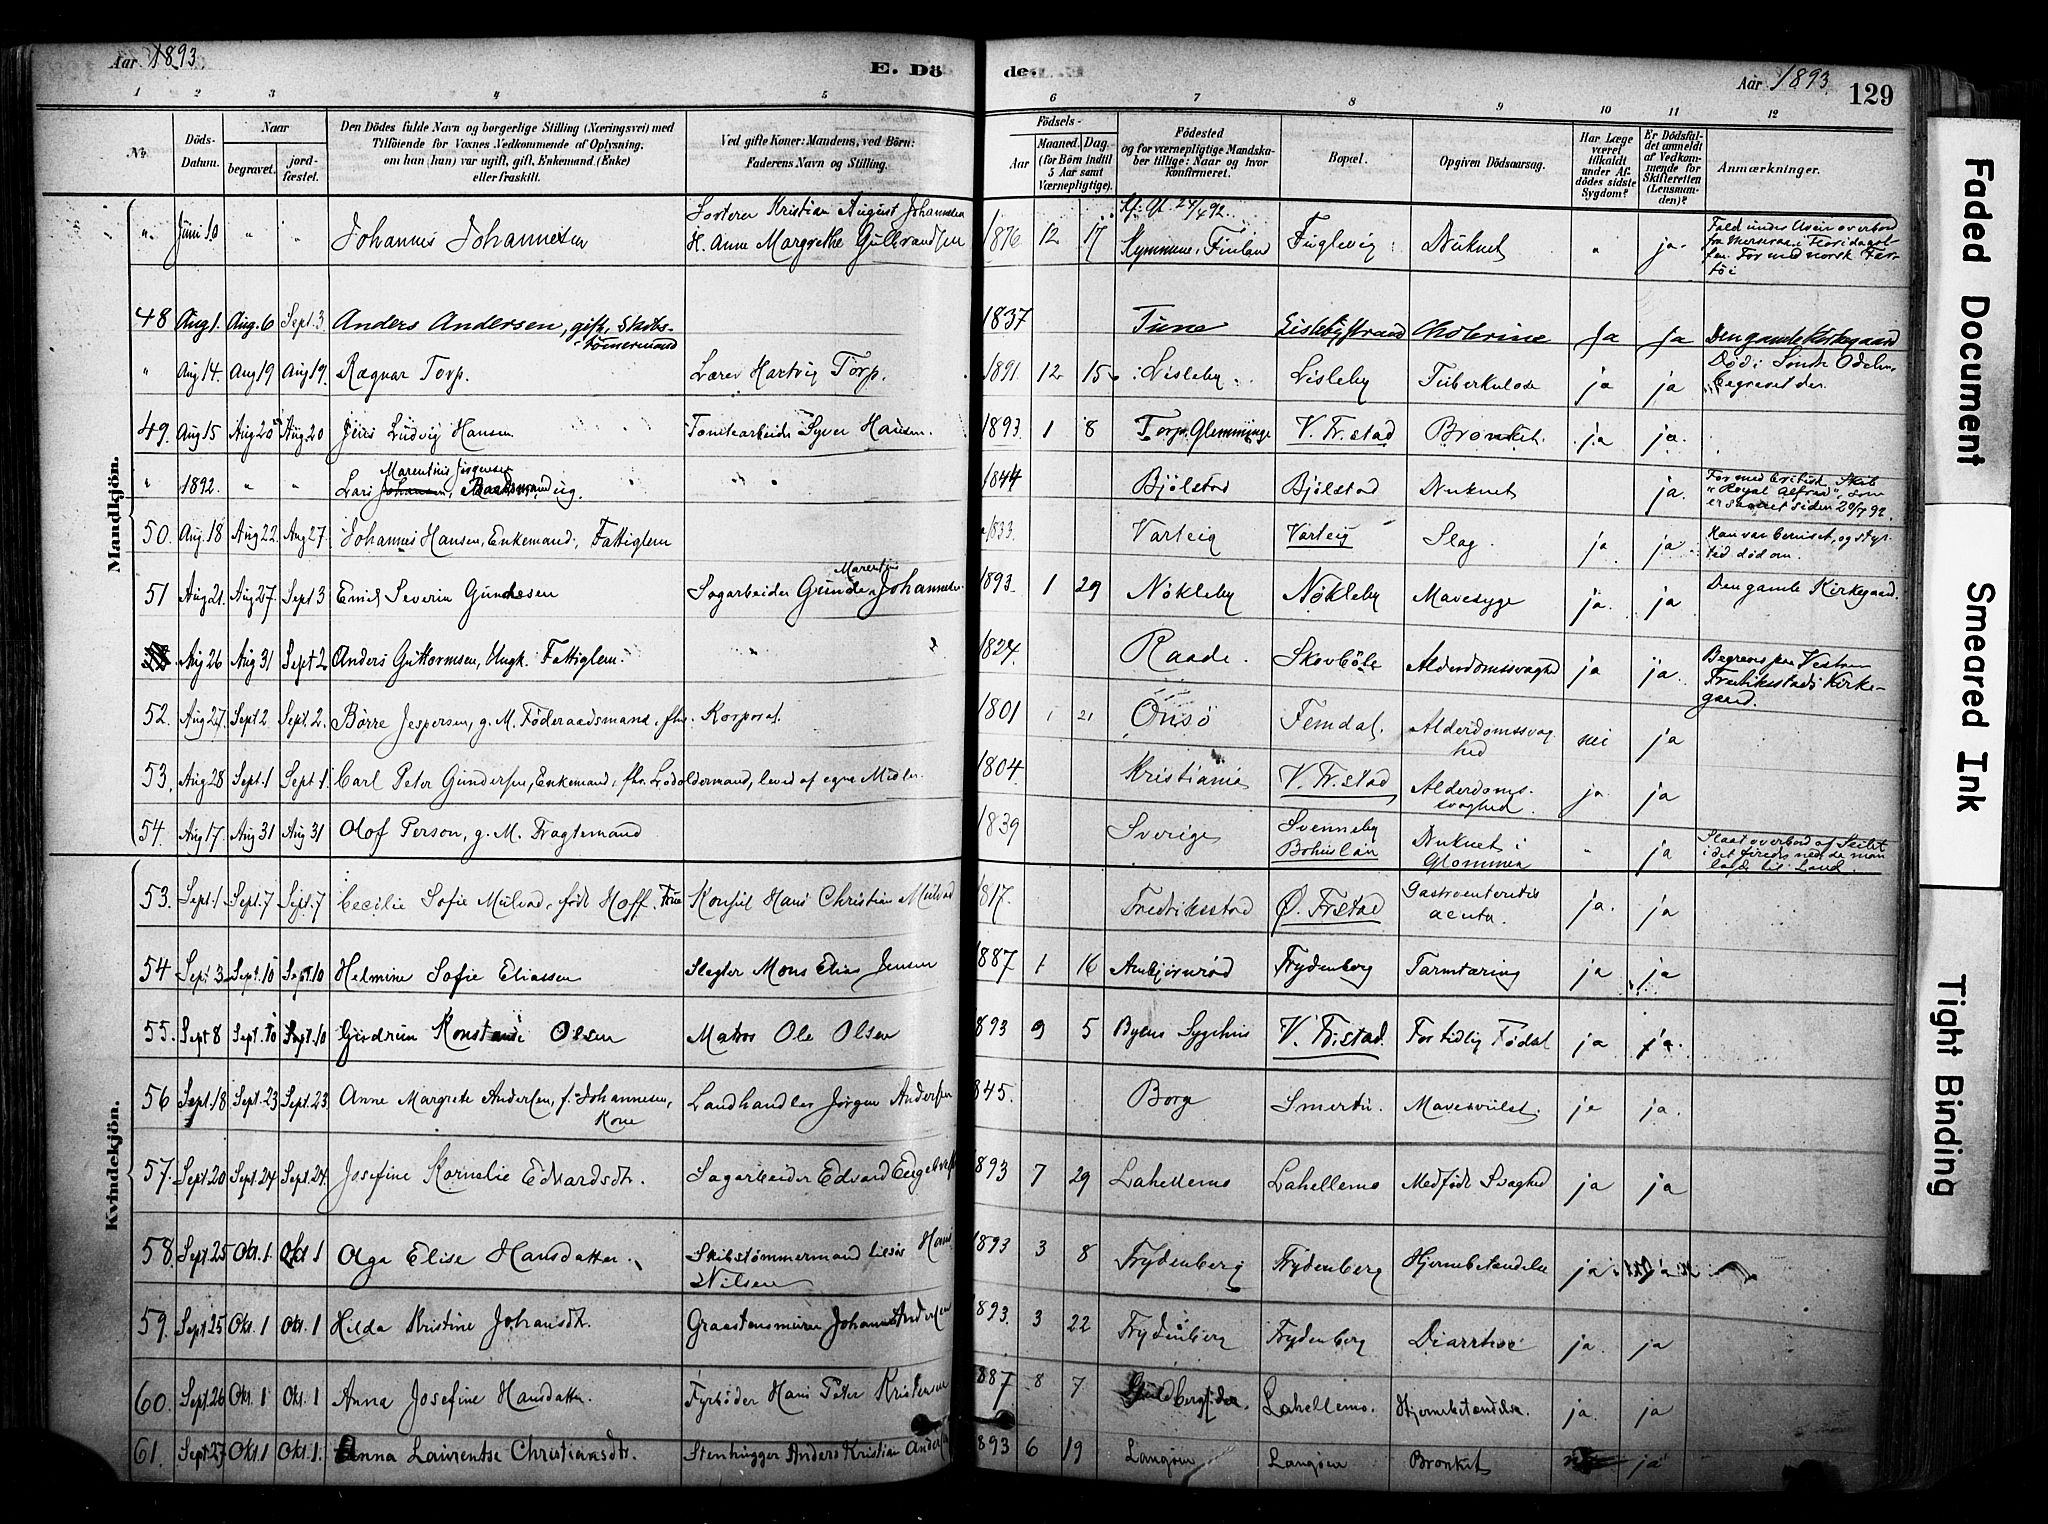 Aar 1893.
E. Dö
de.
Aar 1893.
129
1 2 3 4 5 6 7 8 9 10 11 12
No.
Döds-
Datum.
Naar
begravet.
jord-
fæstet.
Den Dödes fulde Navn og borgerlige Stilling (Næringsvei) med
Tilföiende for Voxnes Vedkommende af Oplysning,
om han (hun) var ugift, gift, Enkemand (Enke)
eller fraskilt.
Ved gifte Koner: Mandens, ved Börn:
Faderens Navn og Stilling.
Födsels-
Aar
Maaned. Dag.
(for Börn indtil
5 Aar samt
Værnepligtige).
Födested
og for værnepligtige Mandska-
ber tillige: Naar og hvor
Konfirmeret.
Bopæl.
Opgiven Dödsaarsag.
Har Læge
været
tilkaldt
under Af-
dödes sidste
Sygdom?
Er Dödsfal-
det anmeldt
af Vedkom-
mende for
Skifteretten
(Lensman-
den)?
Anmærkninger.
Mandkjön.
" Juni 10 " " Johannes Johannesen
Kristian August Johannesen
H. Anne Margrethe Gulbrandsen
1876 12 17
Kymmene, Finland Fuglevig Druknet " ja.
48 Aug 1. Aug. 6 Sept. 3 Anders Andersen, gift, Skibs-
tømmermand
1837 Tune Lislebystrand Cholerine Ja Ja Den gamle Kirkegaard
" Aug 14. Aug 19 Aug 19. Ragnar Torp. Lærer Hartvig Torp. 1891. 12 15 Lisleby Lisleby Tuberkulose ja ja
begravet der.
49. Aug 15 Aug 20 Aug 20 Jens Ludvig Hansen Tomtearbeider Syver Hansen. 1893. 1 8 Torp, Glemminge V. Fr.stad Bronkit. ja ja.
" 1892. " " Marentius Jörgensen
Lars Johansen, Baadsmand, ug. 1844 Bjölstad Bjölstad Druknet ja.
For med britisk Skib
"Royal Alfred", som
er savnet siden 20/7 92.
50. Aug. 18 Aug 22 Aug 27. Johannes Hansen, Enkemand, Fattiglem 1833. Varteig Varteig Slag. ja ja
51 Aug 21. Aug. 27 Sept 3 Emil Severin Gundersen Sagarbeider Gunder Johannesen 1893. 1 29 Nökleby Nökleby Mavesyge ja. ja Den gamle Kirkegaard.
Aug 26 Aug 31 Sept 2 Anders Guttormsen, Ungk. Fattiglem. 1824. Raade. Skovböle Alderdomssvaghed ja ja.
Begraves paa Vestre
Fredriksstads Kirke-
gaard.
52. Aug 27. Sept 2 Sept. 2. Börre Jespersen, g. M. Föderaadsmand, fhv. Korporal. 1801 1 21 Onsö Femdal. Alderdomssvag-
hed nei ja
53. Aug 28 Sept. 1 Sept 1. Carl Peter Gundersen, Enkemand, fhv. Lodsoldermand, leved af egne Midler. 1804. Kristiania V. Fr.stad Alderdoms-
svaghed ja. ja
54. Aug 17. Aug 31 Aug 31 Olof Person, g. M. Fragtemand 1839 Sverige Svenneby
Bohuslän Druknet i
Glommen " ja
Slaat overbord af Seilet
Kvindekjön.
53. Sept. 1 Sept. 7 Sept. 7 Cecilie Sofie Mülvad, födt Hoff, Frue Konsul Hans Christian Mülvad 1817. Fredriksstad Ø. Frstad Gastroenteritis
acuta. ja. ja
54 Sept. 3 Sept. 10 Sept 10 Helmine Sofie Eliassen Slagter Mons Elias Jensen 1887 1 16 Ambjörnröd Frydenberg Tarmtæring ja ja
55. Sept 8 Sept. 10 Sept. 10 Gudrun Konstanse Olsen Matros Ole Olsen 1893 9 5 Byens Sygehus V. Fr.stad. For tidlig Födsel ja ja.
56 Sept. 18 Sept. 23 Sept. 23. Anne Margrete Andersen, f. Johannesen,
Kone Landhandler Jörgen Andersen 1845. Borge Smertu. Mavesvulst. ja ja.
57. Sept 20 Sept. 24 Sept. 24. Josefine Kornelie Edvardsdtr. Sagarbeider Edvard 1893 7 29 Lahellemo Lahellemo Medfödt Svaghed ja ja
58. Sept 25 Okt. 1. Okt 1 Olga Elise Hansdatter. Skibstømmermand Hans
Nilsen 1893 3 8 Frydenberg Frydenberg Hjernebetændelse ja.
59. Sept 25 Okt. 1 Okt. 1 Hilda Kristine Johansdtr. Graastensmurer Johannes Andersen 1893. 3 22 Frydenberg Frydenberg Diarrhoe ja. ja
60. Sept. 26 Okt. 1 Okt. 1 Anna Josefine Hansdatter. Fyrböder Hans Peter Kristensen 1887 8 7 Lahellemo. Hjernebetændelse. ja. ja
61. Sept. 27 Okt. 1 Okt. 1. Anna Laurentse Christiansdtr. Stenhugger Anders Kristian Andersen 1893 6 19 Langöen Langöen Bronkit ja
Faded Document
Smeared Ink
Tight Binding